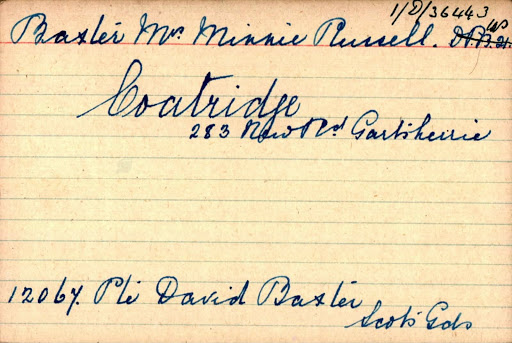 1/D/36443
Baxter Mrs Minnie Russell.
Coatridge
283 New Rd Gartsherrie
12067. Pte David Baxter
Scots Gds